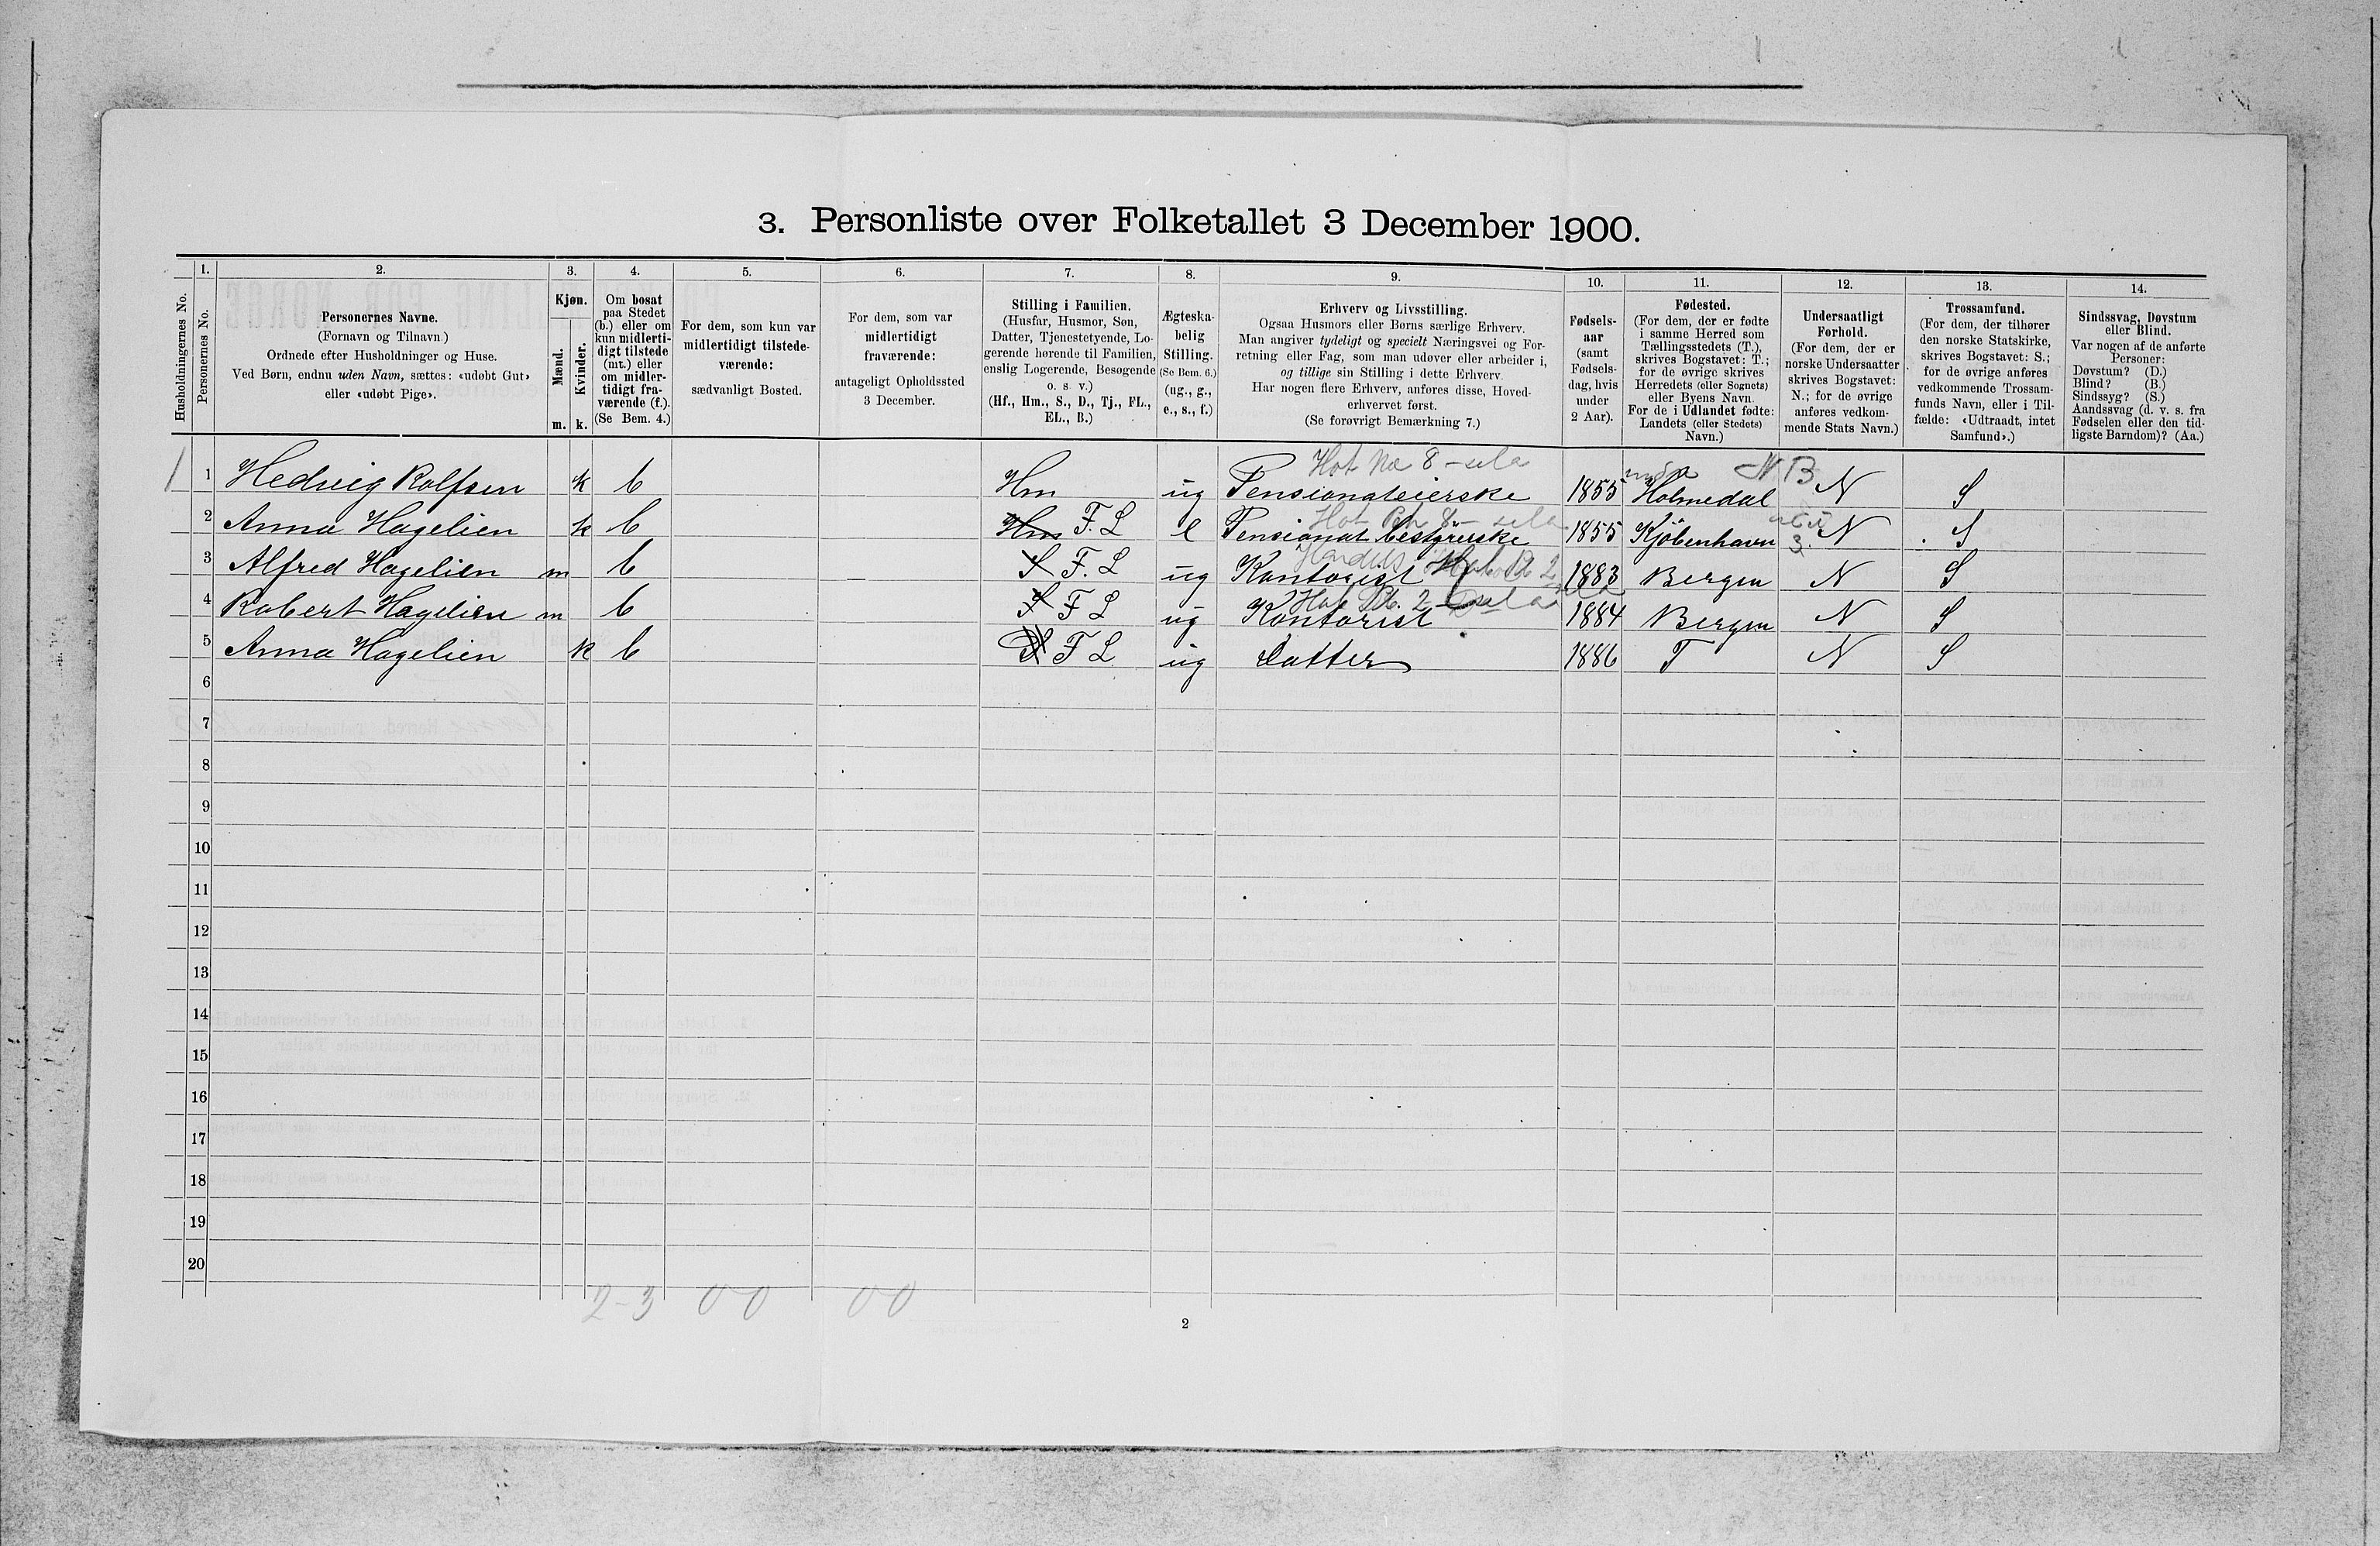 3. Personliste over Folketallet 3 December 1900.
Husholdningernes No.
1.
Personernes No.
2.
Personernes Navne.
(Fornavn og Tilnavn)
Ordnede efter Husholdninger og Huse.
Ved Børn, endnu uden Navn, sættes: «udøbt Gut»
eller «udøbt Pige».
3.
Kjøn.
Mænd.
Kvinder.
m.
k.
4.
Om bosat
paa Stedet
(b.) eller om
kun midlerti-
digt tilstede
(mt.) eller
om midler-
tidigt fra-
værende (f.).
(Se Bem. 4.)
5.
For dem, som kun var
midlertidigt tilstede-
værende:
sædvanligt Bosted.
6.
For dem, som var
midlertidigt
fraværende:
antageligt Opholdssted
3 December.
7.
Stilling i Familien.
(Husfar, Husmor, Søn,
Datter, Tjenestetyende, Lo-
gerende hørende til Familien,
enslig Logerende, Besøgende
o. s. v.)
(Hf., Hm., S., D., Tj., FL.,
EL., B.)
8.
Ægteska-
belig
Stilling.
(Se Bem. 6.)
(ug., g.,
e., s., f.)
9.
Erhverv og Livsstilling.
Ogsaa Husmors eller Børns særlige Erhverv.
Man angiver tydeligt og specielt Næringsvei og For-
retning eller Fag, som man udøver eller arbeider i,
og tillige sin Stilling i dette Erhverv.
Har nogen flere Erhverv, anføres disse, Hoved-
erhvervet først.
(Se forøvrigt Bemærkning 7.)
10.
Fødsels-
aar
(samt
Fødsels-
dag, hvis
under
2 Aar).
11.
Fødested.
(For dem, der er fødte
i samme Herred som
Tællingsstedets (T.),
skrives Bogstavet: T.;
for de øvrige skrives
Herredets (eller Sognets)
eller Byens Navn.
For de i Udlandet fødte:
Landets (eller Stedets)
Navn.)
12.
Undersaatligt
Forhold.
(For dem, der er
norske Undersaatter
skrives Bogstavet:
N.; for de øvrige
anføres vedkom-
mende Stats Navn.)
13.
Trossamfund.
(For dem, der tilhører
den norske Statskirke,
skrives Bogstavet: S.;
for de øvrige anføres
vedkommende Trossam-
funds Navn, eller i Til-
fælde: «Udtraadt, intet
Samfund».)
14.
Sindssvag, Døvstum
eller Blind.
Var nogen af de anførte
Personer:
Døvstum? (D.)
Blind? (B.)
Sindssyg? (S.)
Aandssvag (d. v. s. fra
Fødselen eller den tid-
ligste Barndom)? (Aa.)
Hot 8 - NB
1 1 Hedvig Rolfsen k b Hm ug Pensionateierske 1855 Holmedal N S
Hot 8 -
2 Anna Hagelien k b Hm F. L e Pensionat bestyrerske 1855 Kjöbenhavn N S
Handels 3.
3 Alfred Hagelien m b S F. L ug Kontorist 1883 Bergen N S
Hot 2
4 Robert Hagelien m b S F L ug Kontorist 1884 Bergen N S
5 Anna Hagelien k b F L ug Datter 1886 T N S
6
7
8
9
10
11
12
13
14
15
16
17
18
19
20
2-3 0 0 0 0
2